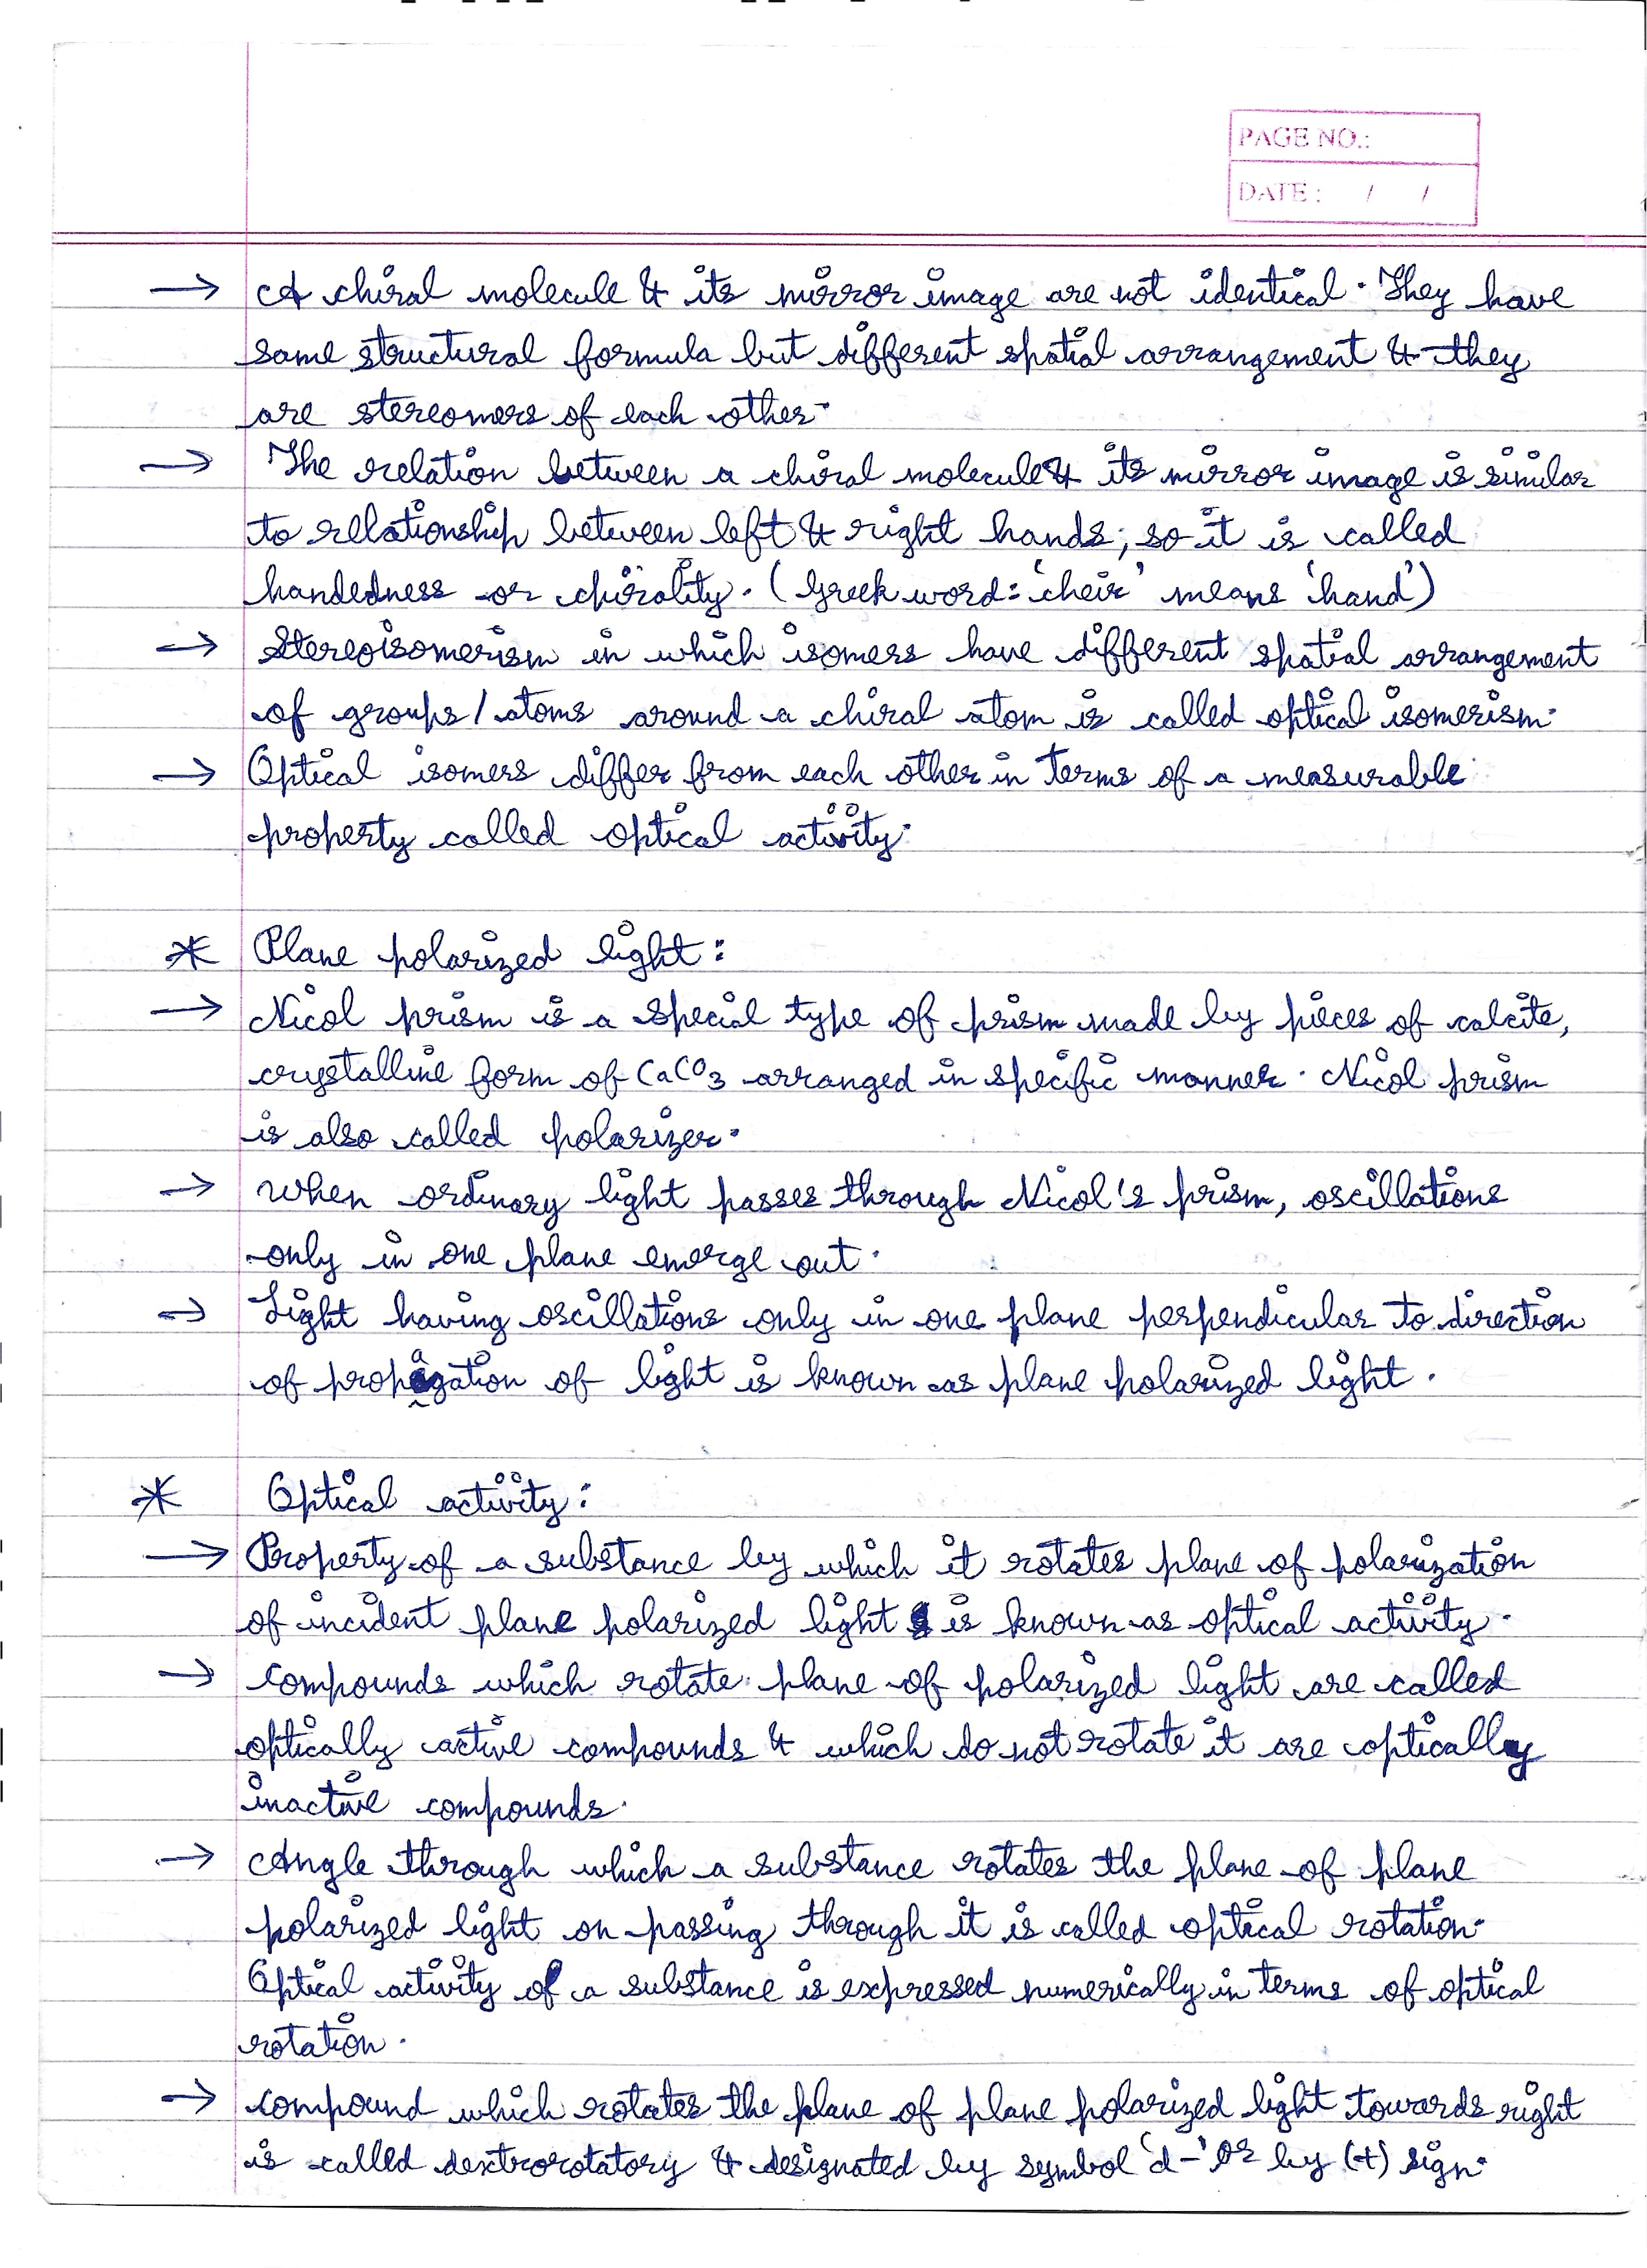 PAGE NO.:
DATE: / /
→ A chiral molecule & its mirror image are not identical. They have
same structural formula but different spatial arrangement & they
are stereomers of each other.
→ The relation between a chiral molecule & its mirror image is similar
to relationship between left & right hands, so it is called
handedness or chirality. (Greek word: 'cheir' means 'hand')
→ Stereoisomerism in which isomers have different spatial arrangement
of groups/atoms around a chiral atom is called optical isomerism.
→ Optical isomers differ from each other in terms of a measurable
property called optical activity.
* Plane polarized light:
→ Nicol prism is a special type of prism made by pieces of calcite,
crystalline form of CaCO3 arranged in specific manner. Nicol prism
is also called polarizer.
→ When ordinary light passes through Nicol's prism, oscillations
only in one plane emerge out.
→ Light having oscillations only in one plane perpendicular to direction
of propagation of light is known as plane polarized light.
* Optical activity:
→ Property of a substance by which it rotates plane of polarization
of incident plane polarized light is known as optical activity.
→ Compounds which rotate plane of polarized light are called
optically active compounds & which do not rotate it are optically
inactive compounds.
→ Angle through which a substance rotates the plane of plane
polarized light on passing through it is called optical rotation.
Optical activity of a substance is expressed numerically in terms of optical
rotation.
→ Compound which rotates the plane of plane polarized light towards right
is called dextrorotatory & designated by symbol 'd-' or by (+) sign.